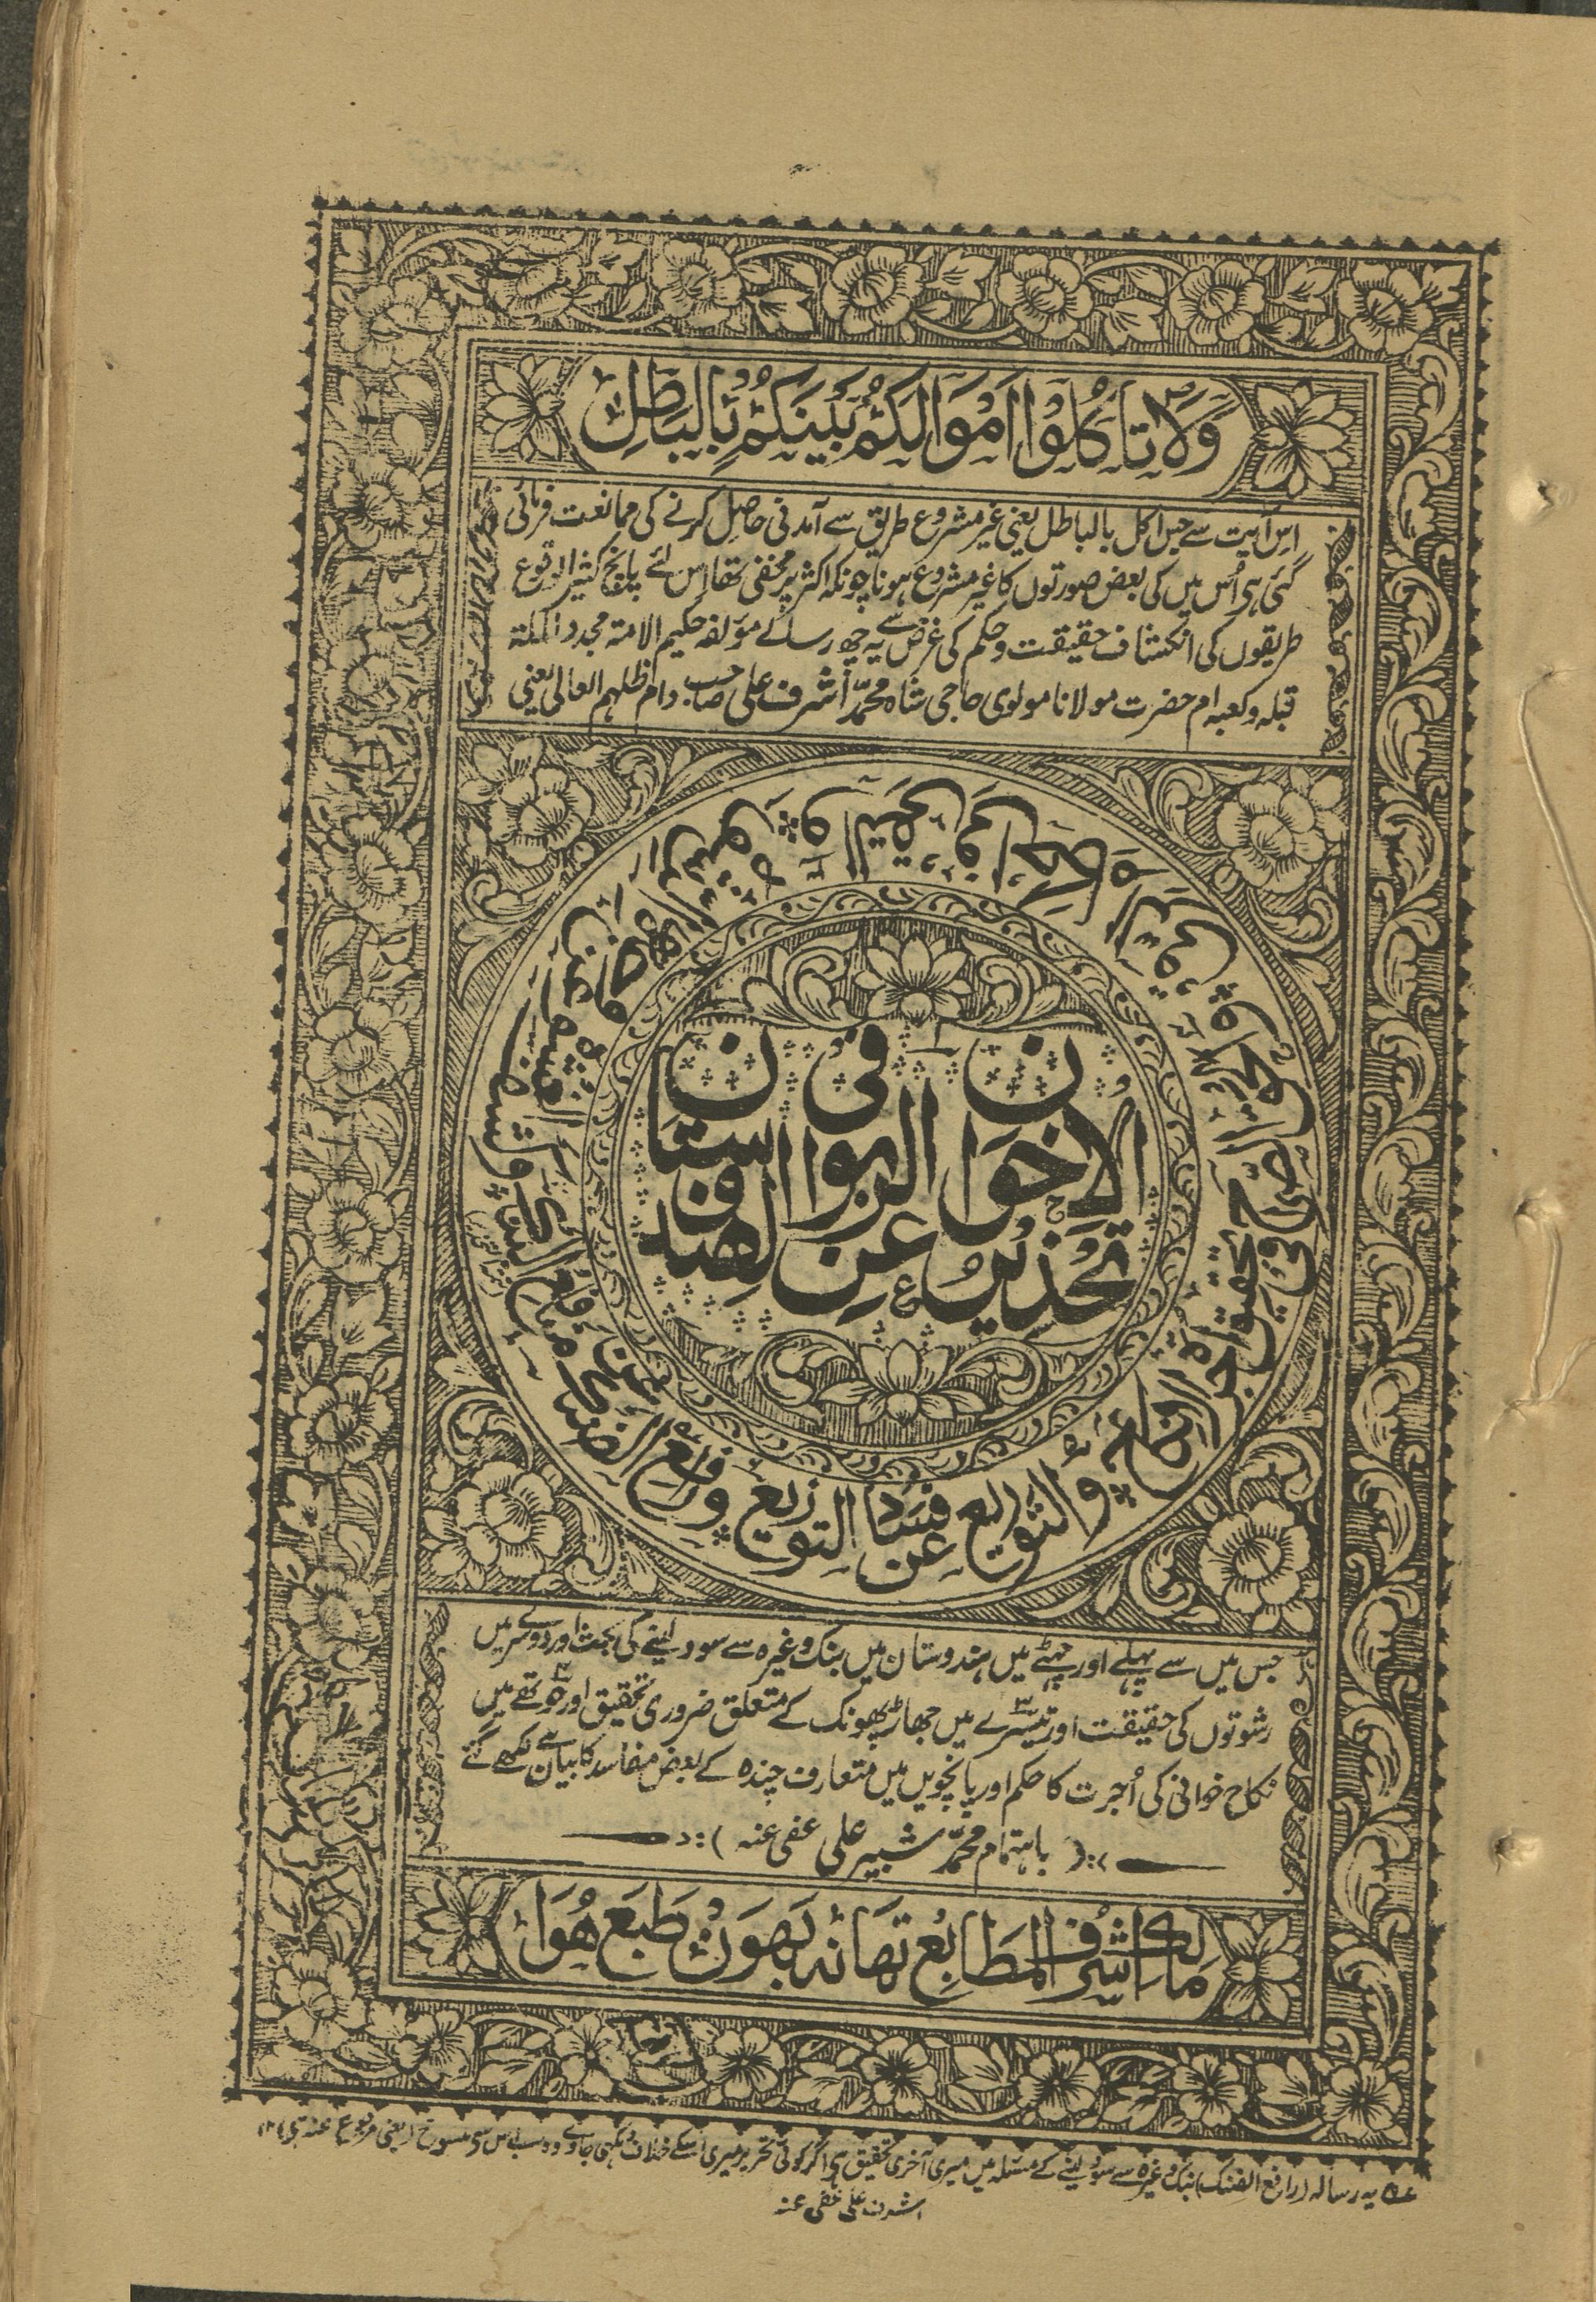 وَلَا تَأْكُلُوْا اَمْوَالَكُمْ بَيْنَكُمْ بِالْبَاطِلِ
اس آیت سے جس اکل بالباطل یعنی غیر مشروع طریق سے آمدنی حاصل کرنے کی ممانعت فرمائی
گئی ہی اُس میں کی بعض صورتوں کا غیر مشروع ہونا چونکہ اکثر پر مخفی تھا اس لئے پانچ کثیر الوقوع
طریقوں کی انکشاف حقیقت و حکم کی غرض سے یہ چھ رسالے مؤلفہ حکیم الامتہ مجدد الملتہ
قبلہ و کعبہ ام حضرت مولانا مولوی حاجی شاہ محمد اشرف علی صاحب دام ظلہم العالی یعنی
تحذیر الاخوان عن الربوا فی الہندوستان
والحق الصراح فی تحقیق اجرۃ النکاح
والتوریع عن فساد التوزیع
ورافع الضنک عن منافع البنک
جس میں سے پہلے اور چھٹے میں ہندوستان میں بنک وغیرہ سے سود لینے کی بحث اور دوسرے میں
رشوتوں کی حقیقت اور تیسرے میں جھاڑ پھونک کے متعلق ضروری تحقیق اور چوتھے میں
نکاح خوانی کی اُجرت کا حکم اور پانچویں میں متعارف چندہ کے بعض مفاسد کا بیان ہے لکھے گئے
باہتمام محمد شبیر علی عفی عنہ
مالک اشرف المطابع تھانہ بھون طبع ہوا
یہ رسالہ (رافع الضنک) بنک وغیرہ سے سود لینے کے مسئلہ میں میری آخری تحقیق ہی اگر کوئی تحریر میری اسکے خلاف دیکھی جاوے وہ سب اس سے منسوخ (یعنی مرجوع عنہ ہی) ۱۲
اشرف علی عفی عنہ